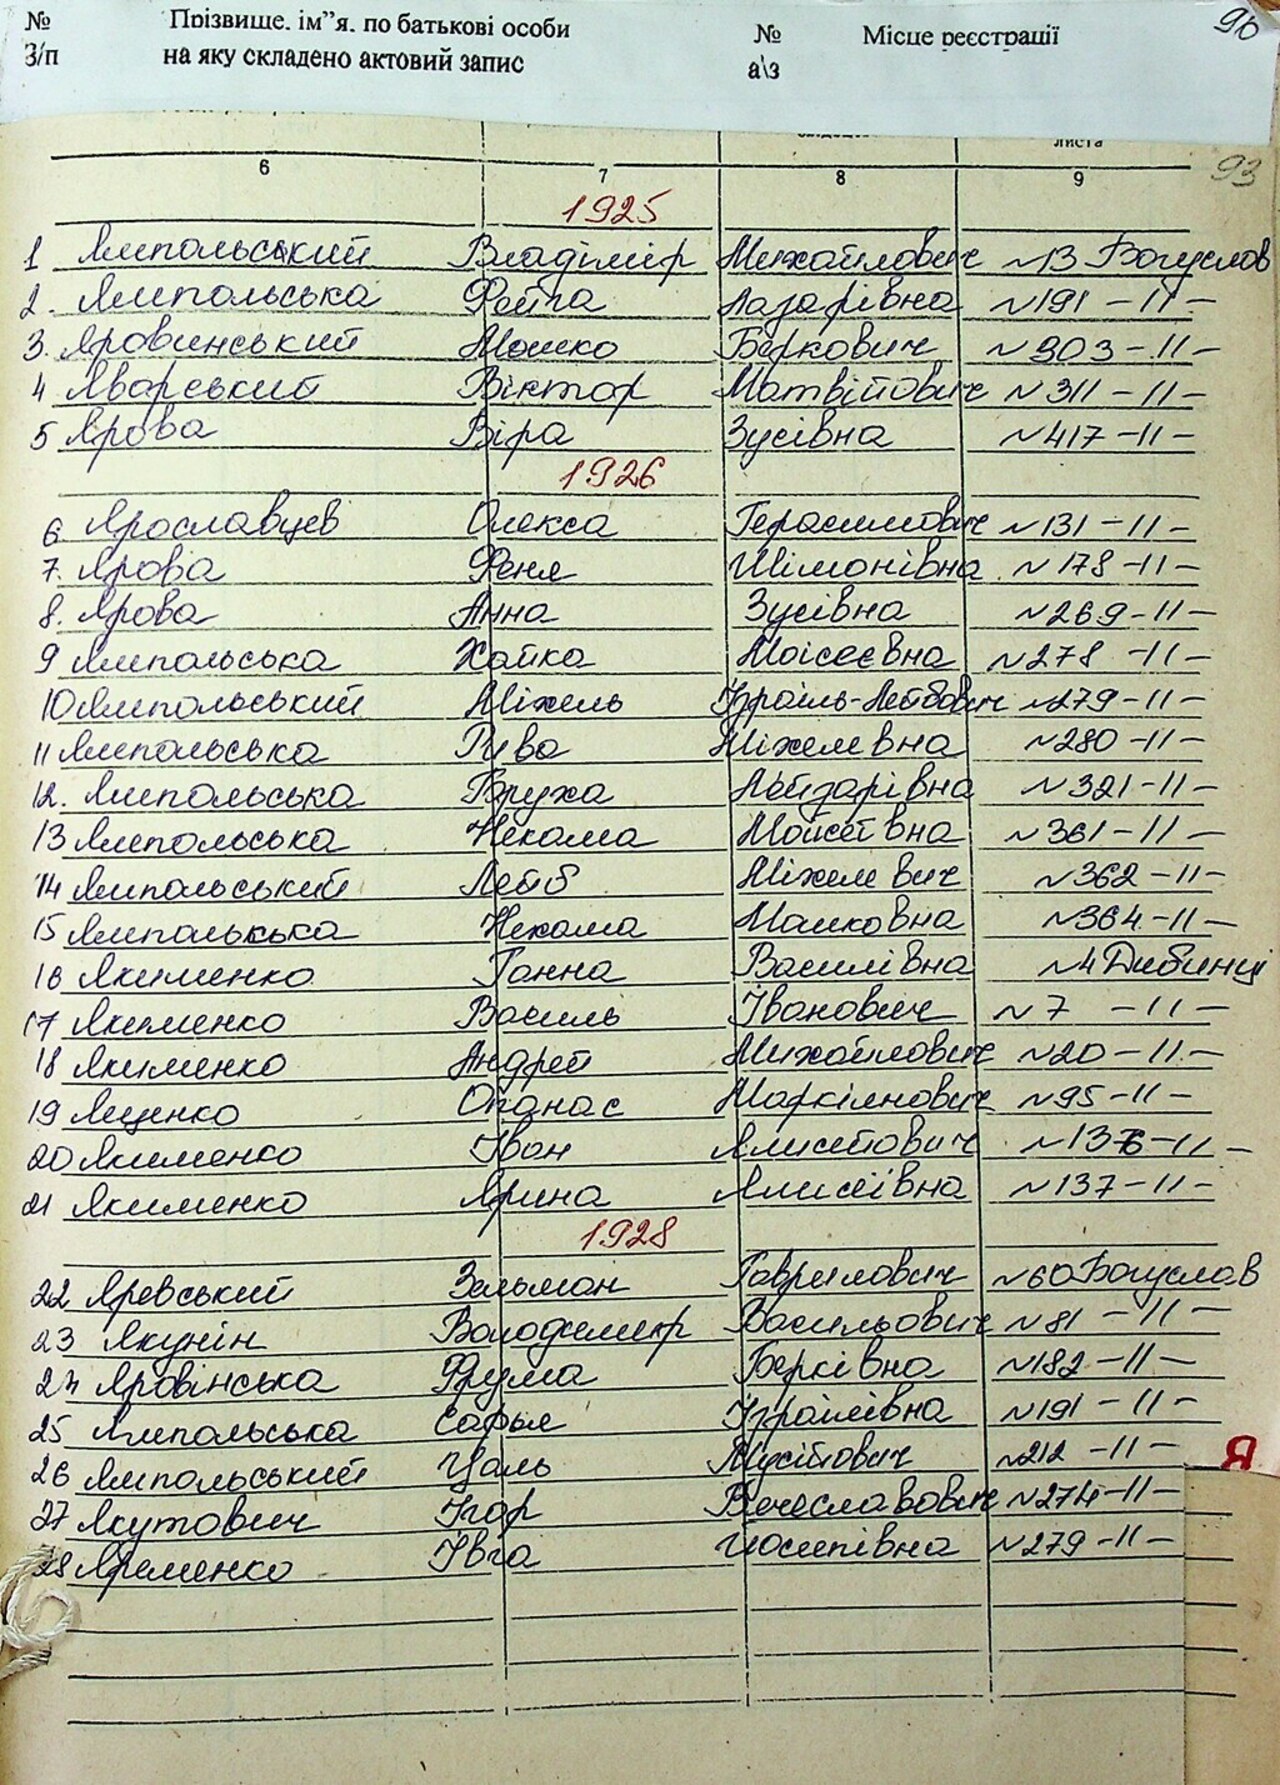 № Прізвище. ім"я. по батькові особи № Місце реєстрації 96
З/п на яку складено актовий запис а\з
листа
6 7 8 9 93
1925
1 Ямпольський Владімір Михайлович №13 Богуслов
2. Ямпольська Фейга Лазарівна №191 -11-
3. Яровинський Мошко Беркович №303 -11-
4 Яворський Віктор Матвійович №311 -11-
5 Ярова Віра Зусівна №417 -11-
1926
6 Ярославцев Олекса Герасимович №131 -11-
7. Ярова Феня Шімонівна №178 -11-
8. Ярова Анна Зусівна №269 -11-
9 Ямпольська Хайка Моісеєвна №278 -11-
10 Ямпольський Міхель Ізраїль-Лейбович №279 -11-
11 Ямпольська Рива Міхелевна №280 -11-
12. Ямпольська Бруха Лейзарівна №321 -11-
13 Ямпольська Нехама Мойсеївна №361 -11-
14 Ямпольський Лейб Міхелевич №362 -11-
15 Ямполькька Нехама Машковна №364 -11-
16 Якименко Ганна Василівна №4 Дибинці
17 Якименко Василь Іванович №7 -11-
18 Якименко Андрей Михайлович №20 -11-
19 Яценко Опанас Маркіянович №95 -11-
20 Якименко Іван №136 -11-
21 Якименко Ярина №137 -11-
1928
22 Яревський Зельман Гаврилович №60 Богуслав
23 Якунін Володимир Васильович №81 -11-
24 Яровінська Фрума Берківна №182 -11-
25 Ямпольська Софья Ізраїлівна №191 -11-
26 Ямпольський Цаль Мусійович №212 -11-
27 Якутович Ігор Вечеславович №274 -11-
28 Яременко Івга Йосипівна №279 -11-
Я